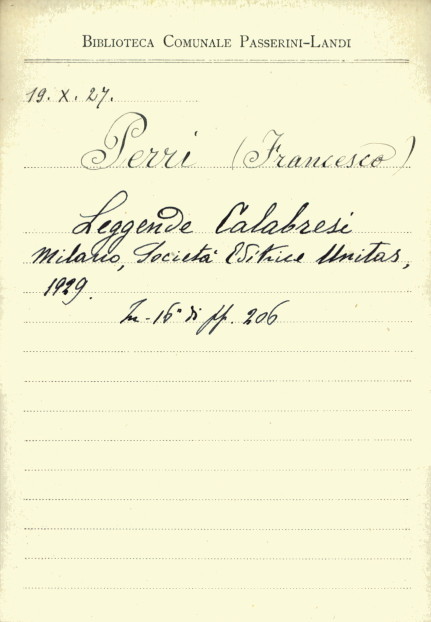 BIBLIOTECA COMUNALE PASSERINI-LANDI
19. X. 27.
Perri (Francesco)
Leggende Calabresi
Milano, Società Editrice Unitas,
1929.
In-16° di pp. 206